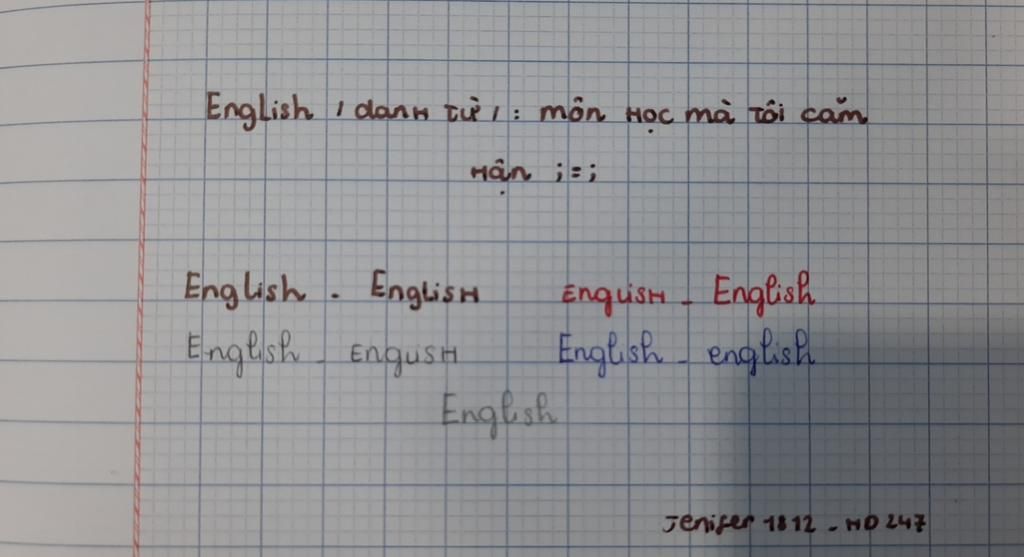 English / danh từ / : môn học mà tôi căm
hận ;=;
English - English English - English
English - English English - english
English
Jenifer 1812 - HD 247